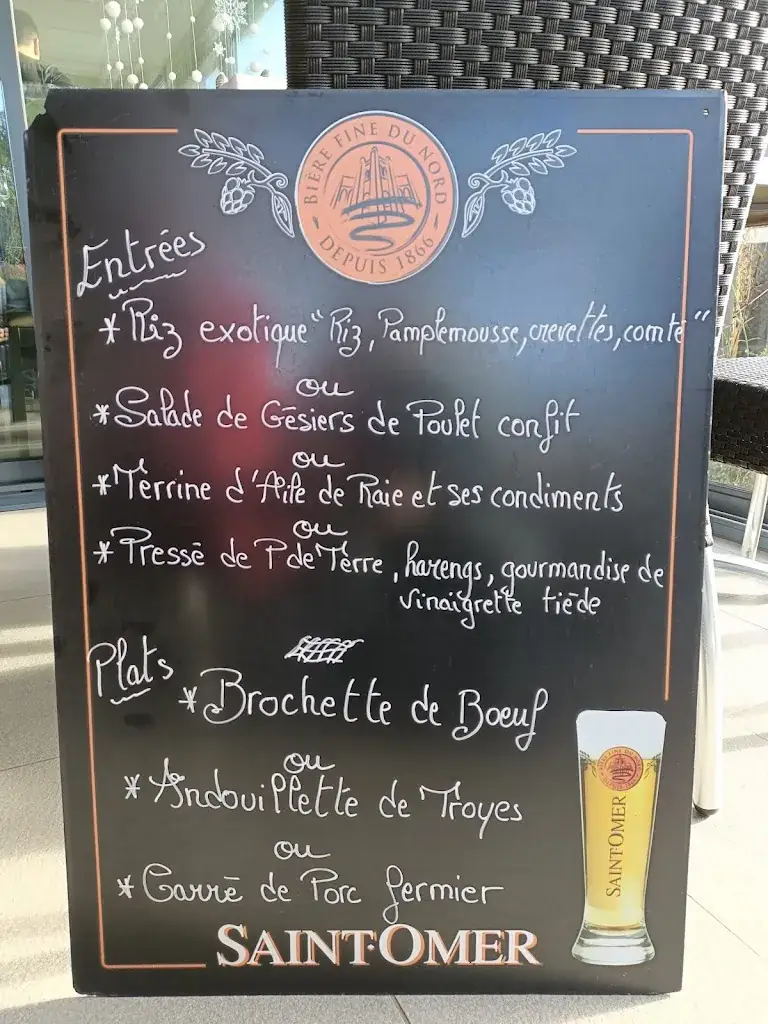 BIÈRE FINE DU NORD
DEPUIS 1866
Entrées
* Riz exotique "Riz, Pamplemousse, crevettes, comté"
ou
* Salade de Gésiers de Poulet confit
ou
* Terrine d'Aile de Raie et ses condiments
ou
* Pressé de P de Terre, harengs, gourmandise de
vinaigrette tiède
Plats
* Brochette de Boeuf
ou
* Andouillette de Troyes
ou
* Carré de Porc fermier
BIÈRE FINE DU NORD
SAINT-OMER
SAINT·OMER